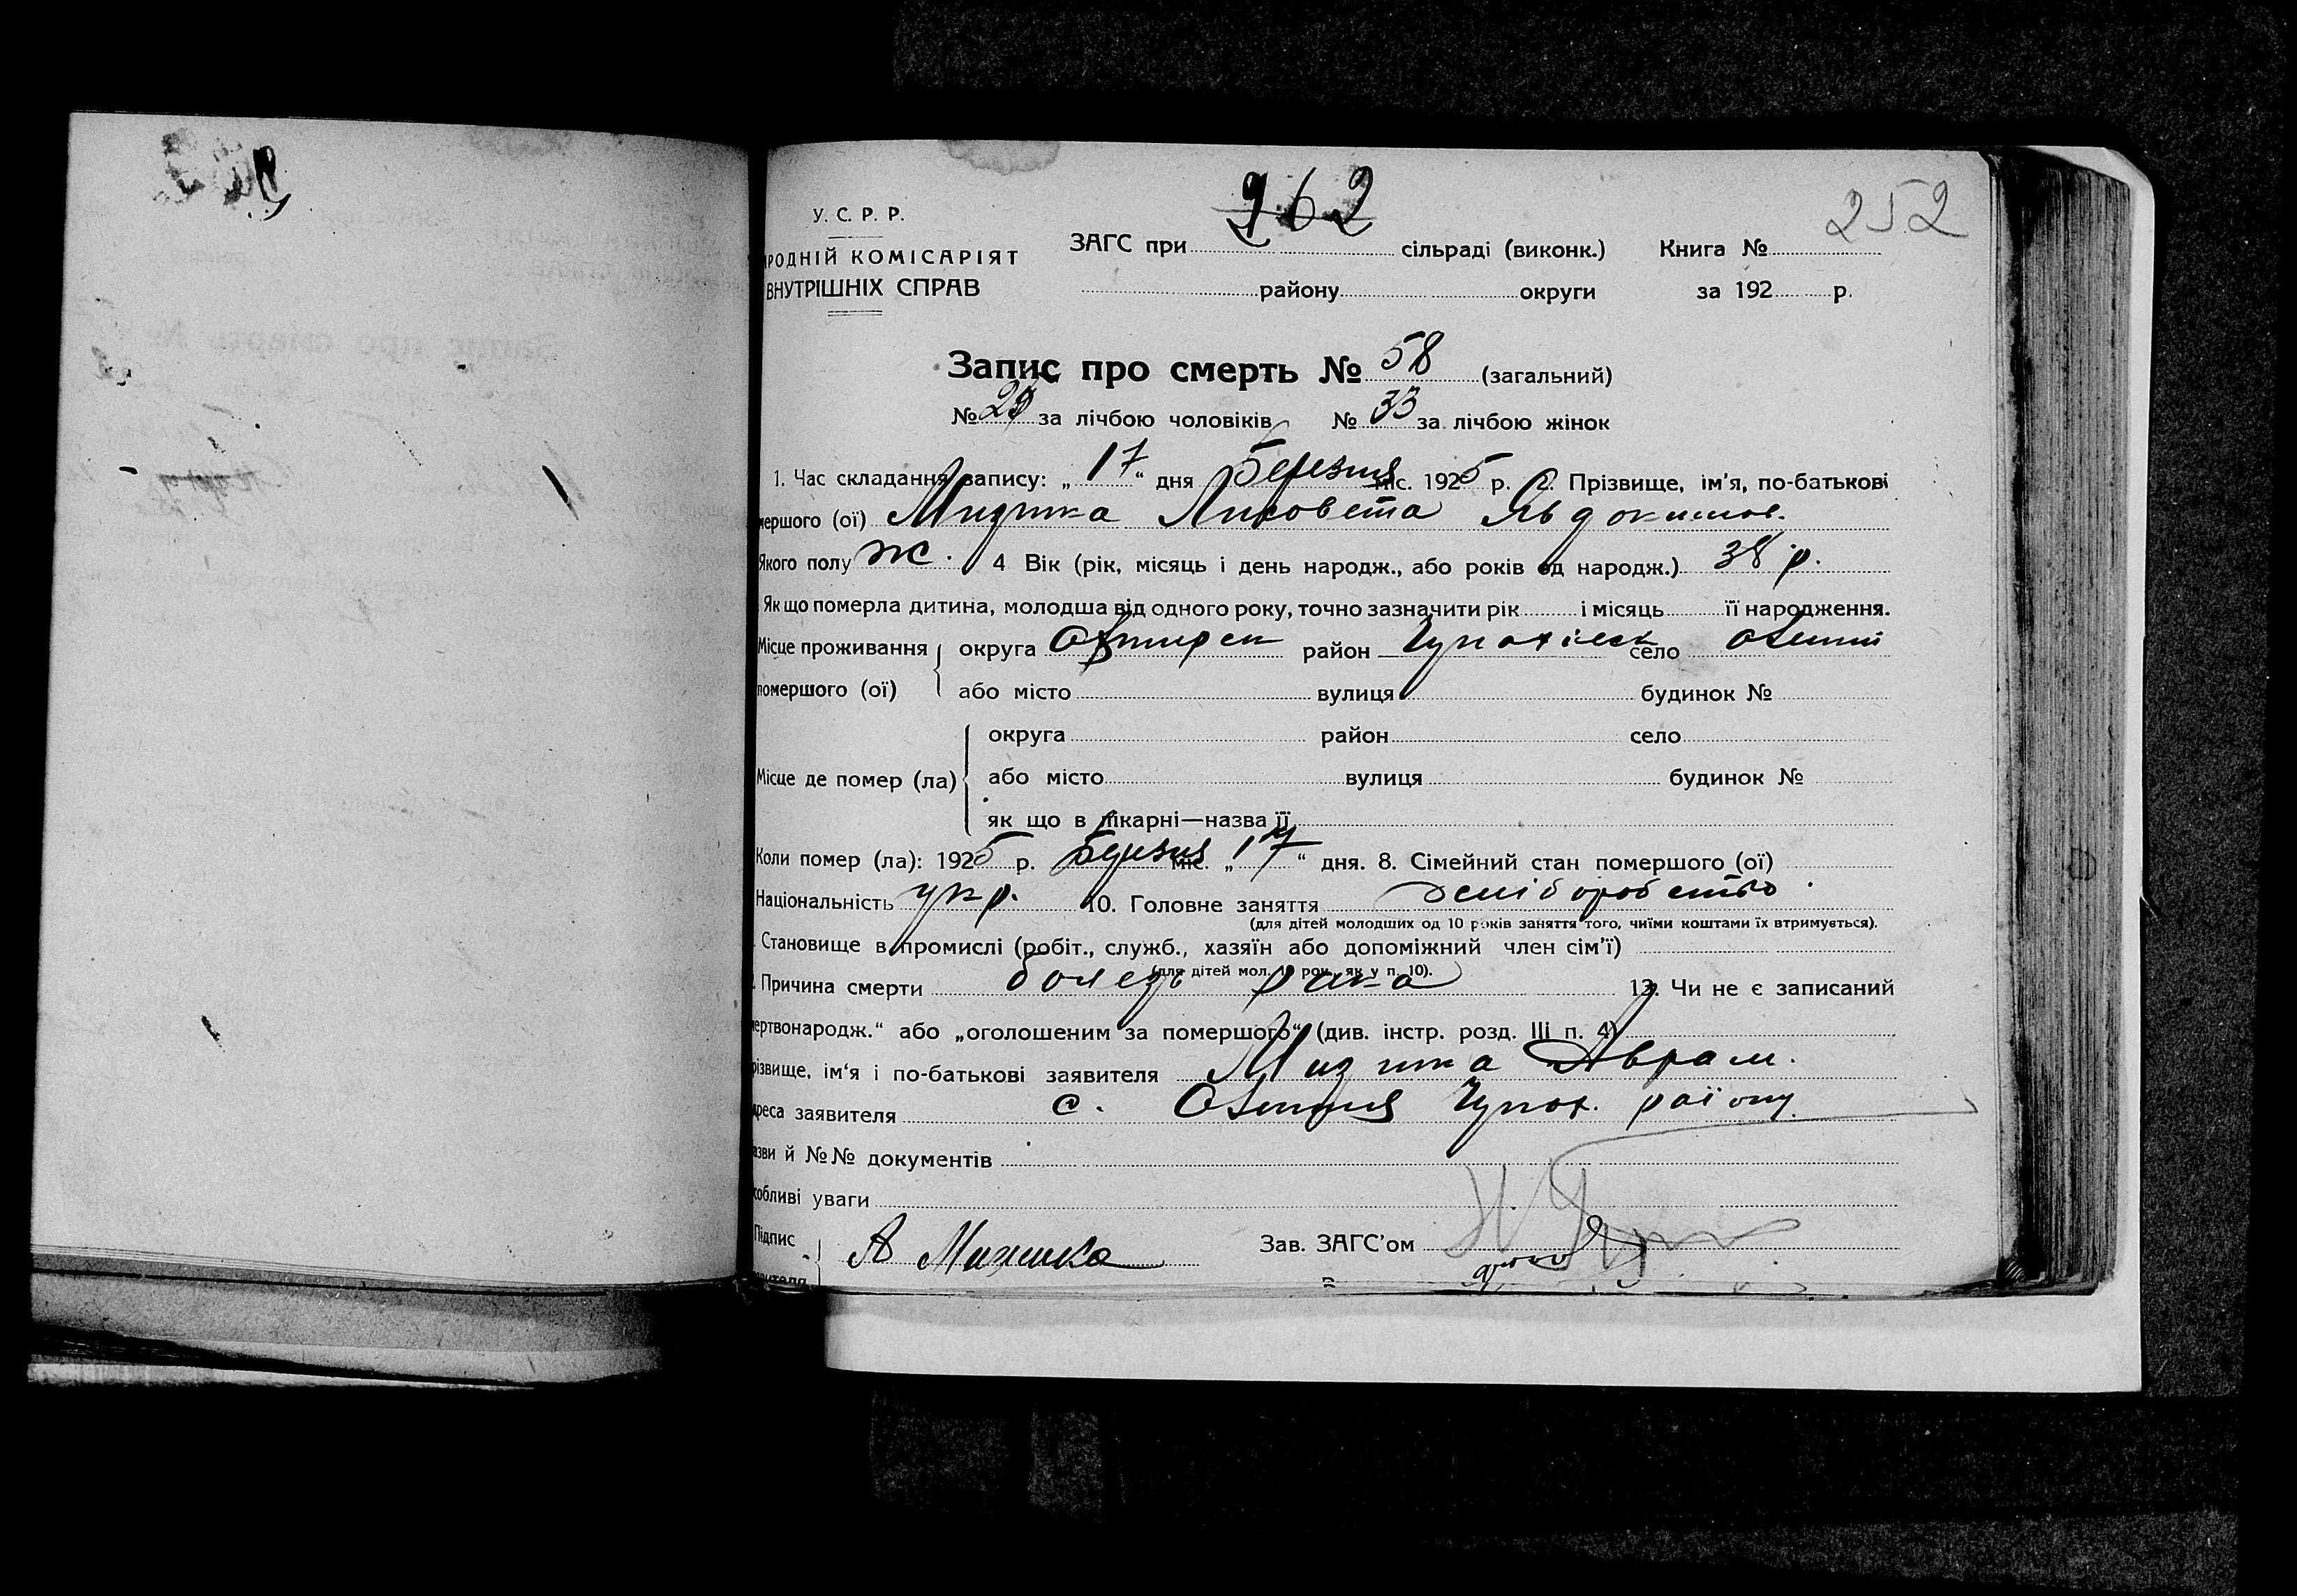 262
252
У. С. Р. Р.
РОДНІЙ КОМІСАРІЯТ
ВНУТРІШНІХ СПРАВ
ЗАГС при сільраді (виконк.) Книга №
району округи за 192 р.
Запис про смерть № 58 (загальний)
№ за лічбою чоловіків № 33 за лічбою жінок
1. Час складання запису: „17“ дня березня міс. 1925 р. 2. Прізвище, ім'я, по-батькові
мершого (ої)
Якого полу ж. 4 Вік (рік, місяць і день народж., або років од народж.) 38 р.
Як що померла дитина, молодша від одного року, точно зазначити рік і місяць її народження.
Місце проживання округа район село
помершого (ої) або місто вулиця будинок №
округа район село
Місце де помер (ла) або місто вулиця будинок №
як що в лікарні—назва її
Коли помер (ла): 1925 р. березня міс. „17“ дня. 8. Сімейний стан помершого (ої)
Національність укр. 10. Головне заняття
(для дітей молодших од 10 років заняття того, чиїми коштами їх втримується).
Становище в промислі (робіт., служб., хазяїн або допоміжний член сім'ї)
(для дітей мол. 10 рок., як у п. 10).
Причина смерти рака 13. Чи не є записаний
ертвонародж.“ або „оголошеним за помершого“ (див. інстр. розд. III п. 4)
різвище, ім'я і по-батькові заявителя Аврам.
реса заявителя с. району
азви й №№ документів
собливі уваги
Підпис А Зав. ЗАГС'ом